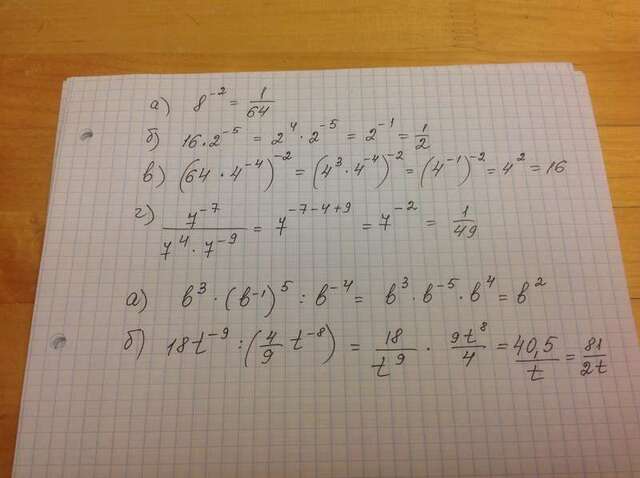 а) 8⁻² = 1/64
б) 16·2⁻⁵ = 2⁴·2⁻⁵ = 2⁻¹ = 1/2
в) (64·4⁻⁴)⁻² = (4³·4⁻⁴)⁻² = (4⁻¹)⁻² = 4² = 16
г) 7⁻⁷/(7⁴·7⁻⁹) = 7⁻⁷⁻⁴⁺⁹ = 7⁻² = 1/49
а) b³·(b⁻¹)⁵ : b⁻⁴ = b³·b⁻⁵·b⁴ = b²
б) 18t⁻⁹ : (4/9 t⁻⁸) = 18/t⁹ · 9t⁸/4 = 40,5/t = 81/2t